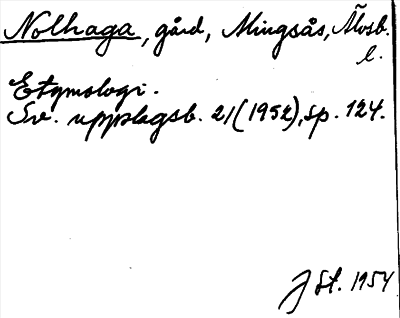 Nolhaga, gård, Alingsås, Älvsb.
l.
Etymologi.
Sv. upplagsb. 21(1952), sp. 124.
J St. 1954